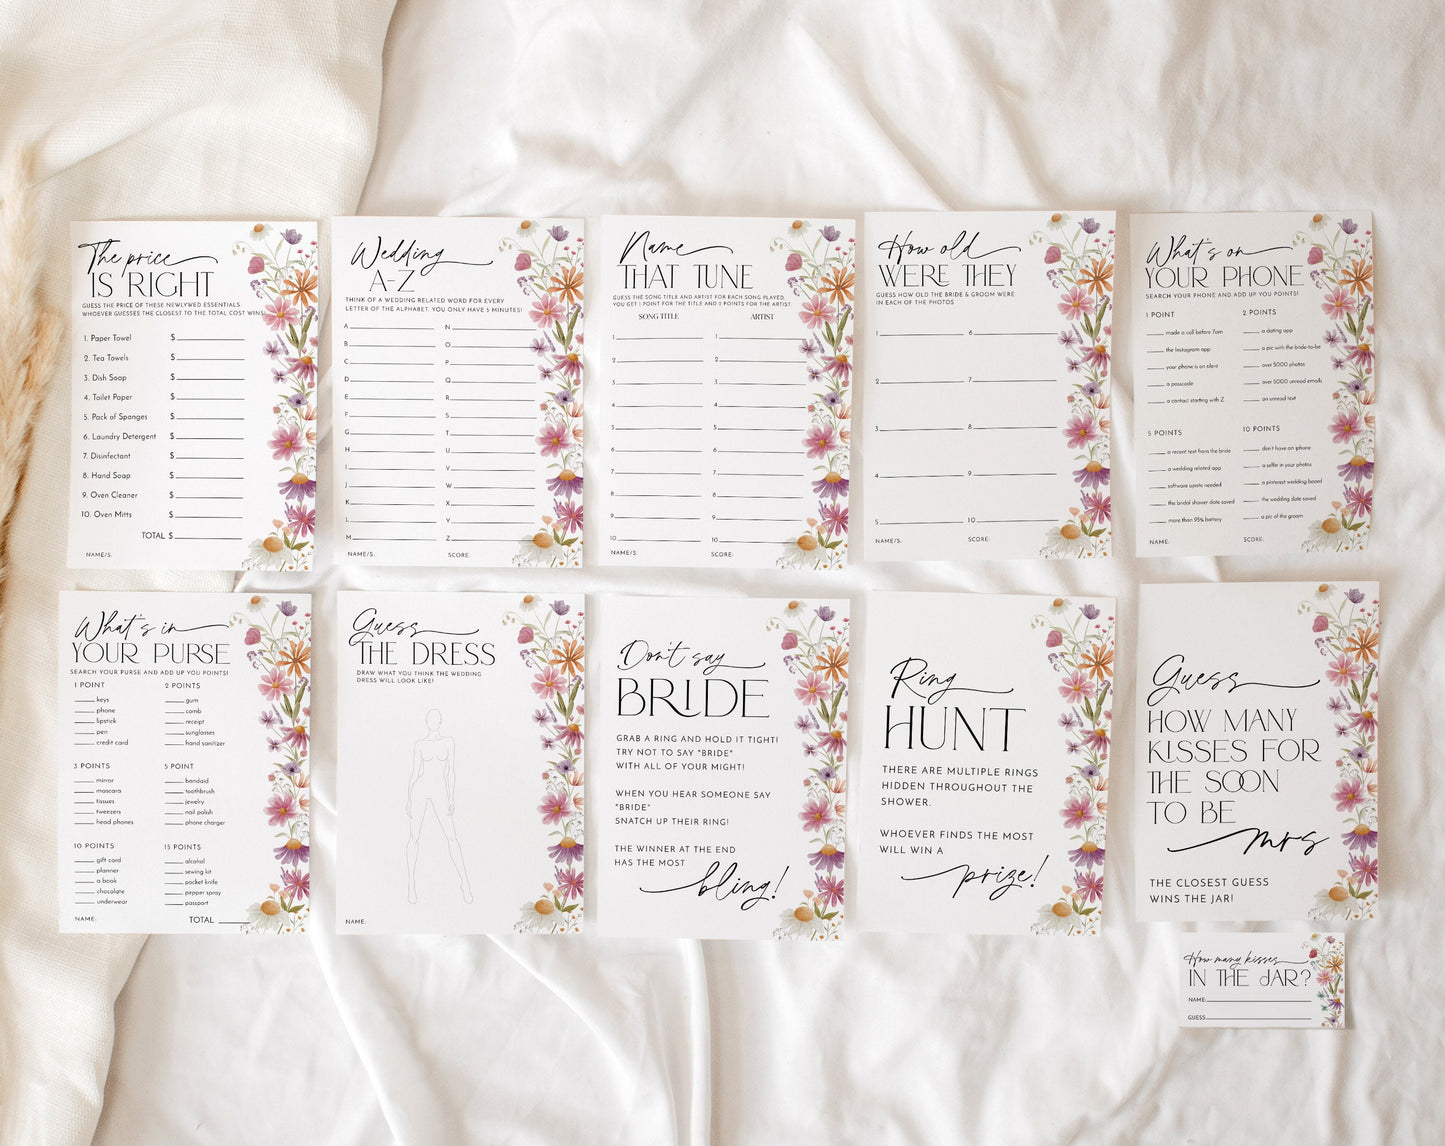 The price
IS RIGHT
GUESS THE PRICE OF THESE NEWLYWED ESSENTIALS.
WHOEVER GUESSES THE CLOSEST TO THE TOTAL COST WINS!
1. Paper Towel $
2. Tea Towels $
3. Dish Soap $
4. Toilet Paper $
5. Pack of Sponges $
6. Laundry Detergent $
7. Disinfectant $
8. Hand Soap $
9. Oven Cleaner $
10. Oven Mitts $
TOTAL $
NAME/S:
Wedding
A-Z
THINK OF A WEDDING RELATED WORD FOR EVERY
LETTER OF THE ALPHABET. YOU ONLY HAVE 5 MINUTES!
A N
B O
C P
D Q
E R
F S
G T
H U
I V
J W
K X
L Y
M Z
NAME/S: SCORE:
Name
THAT TUNE
GUESS THE SONG TITLE AND ARTIST FOR EACH SONG PLAYED.
YOU GET 1 POINT FOR THE TITLE AND 2 POINTS FOR THE ARTIST.
SONG TITLE ARTIST
1 1
2 2
3 3
4 4
5 5
6 6
7 7
8 8
9 9
10 10
NAME/S: SCORE:
How old
WERE THEY
GUESS HOW OLD THE BRIDE & GROOM WERE
IN EACH OF THE PHOTOS
1 6
2 7
3 8
4 9
5 10
NAME/S: SCORE:
What's on
YOUR PHONE
SEARCH YOUR PHONE AND ADD UP YOU POINTS!
1 POINT 2 POINTS
made a call before 7am a dating app
the Instagram app a pic with the bride-to-be
your phone is on silent over 5000 photos
a passcode over 5000 unread emails
a contact starting with Z an unread text
5 POINTS 10 POINTS
a recent text from the bride don't have an iphone
a wedding related app a selfie in your photos
software upate needed a pinterest wedding board
the bridal shower date saved the wedding date saved
more than 95% battery a pic of the groom
NAME: SCORE:
What's in
YOUR PURSE
SEARCH YOUR PURSE AND ADD UP YOU POINTS!
1 POINT 2 POINTS
keys gum
phone comb
lipstick receipt
pen sunglasses
credit card hand sanitizer
3 POINTS 5 POINT
mirror bandaid
mascara toothbrush
tissues jewelry
tweezers nail polish
head phones phone charger
10 POINTS 15 POINTS
gift card alcohol
planner sewing kit
a book pocket knife
chocolate pepper spray
underwear passport
NAME: TOTAL
Guess
THE DRESS
DRAW WHAT YOU THINK THE WEDDING
DRESS WILL LOOK LIKE!
NAME:
Don't say
BRIDE
GRAB A RING AND HOLD IT TIGHT!
TRY NOT TO SAY "BRIDE"
WITH ALL OF YOUR MIGHT!
WHEN YOU HEAR SOMEONE SAY
"BRIDE"
SNATCH UP THEIR RING!
THE WINNER AT THE END
HAS THE MOST
bling!
Ring
HUNT
THERE ARE MULTIPLE RINGS
HIDDEN THROUGHOUT THE
SHOWER.
WHOEVER FINDS THE MOST
WILL WIN A
prize!
Guess
HOW MANY
KISSES FOR
THE SOON
TO BE
mrs
THE CLOSEST GUESS
WINS THE JAR!
How many kisses
IN THE JAR?
NAME:
GUESS: